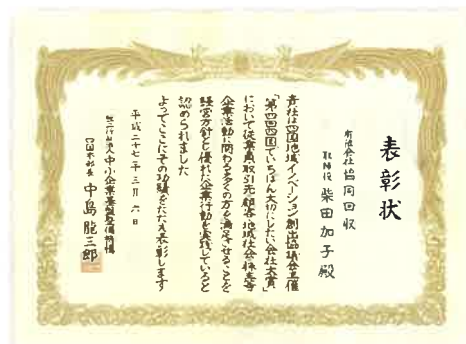 表彰状
有限会社 協同回収
取締役 柴田加子 殿
貴社は四国地域イノベーション創出協議会主催
「第四回四国でいちばん大切にしたい会社大賞」
において従業員取引先顧客地域社会株主等
企業活動に関わる多くの方を満足させることを
経営方針とし優れた企業行動を実践していると
認められました
よってここにその功績をたたえ表彰します
平成二十七年三月六日
独立行政法人 中小企業基盤整備機構
四国本部長 中島龍三郎